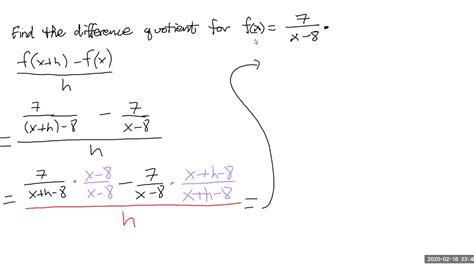 Find the difference quotient for f(x) = 7/(x-8).
(f(x+h) - f(x))/h
= (7/((x+h)-8) - 7/(x-8))/h
= (7/(x+h-8) · (x-8)/(x-8) - 7/(x-8) · (x+h-8)/(x+h-8))/h =